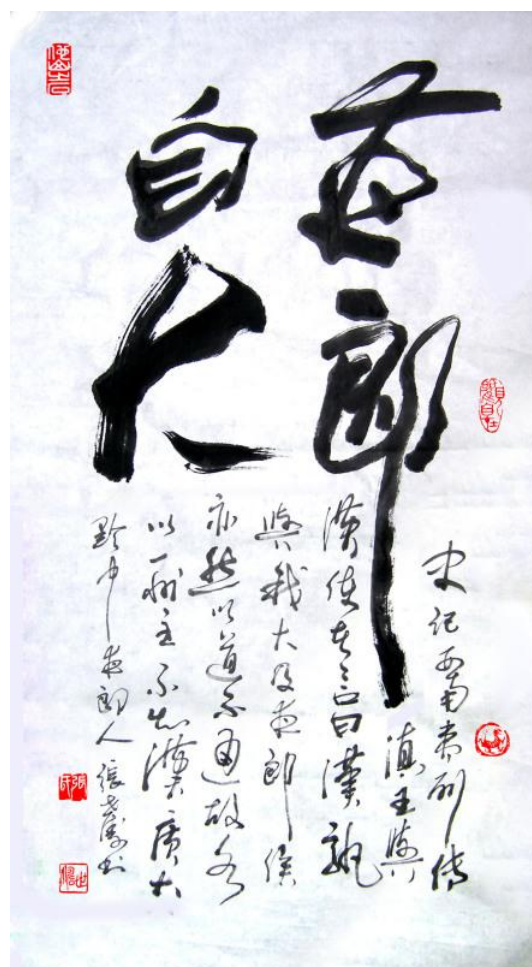 夜郎
自大
史记西南夷列传
滇王與
漢使者言曰漢孰
與我大及夜郎侯
亦然以道不通故各
以一州主不知漢廣大
黔中夜郎人 張世书
張氏